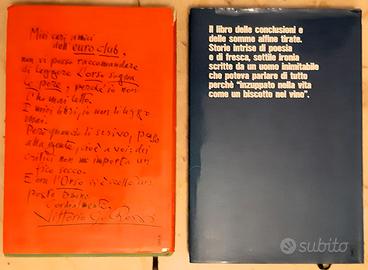 Miei cari amici
dell'euroclub,
non vi posso raccomandare
di leggere L'orso sogna
le pere, perché io non
l'ho mai letto.
I miei libri, io non li leggo
mai.
Però quando li scrivo, penso
alla gente, cioè a voi: dei
critici non me importa un
fico secco.
E ora l'Orso si è scelto un
posto
Cordialmente,
Vittorio G. Rossi
Il libro delle conclusioni e
delle somme alfine tirate.
Storie intrise di poesia
e di fresca, sottile ironia
scritte da un uomo inimitabile
che poteva parlare di tutto
perchè "inzuppato nella vita
come un biscotto nel vino".
subito